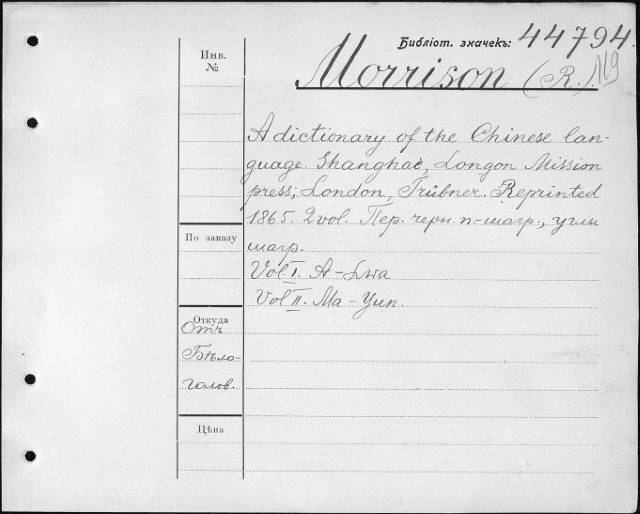 Библіот. значекъ: 44794.
119
Инв.
№
Morrison (R.).
A dictionary of the Chinese lan-
guage. Shanghae, Longon Mission
press; London, Trübner. Reprinted
1865. 2 vol. Пер. черн. п-шагр., углы
шагр.
Vol I. A-Lwa
Vol II. Ma-Yun.
По заказу
Откуда
Отъ
Бѣло-
голов.
Цѣна